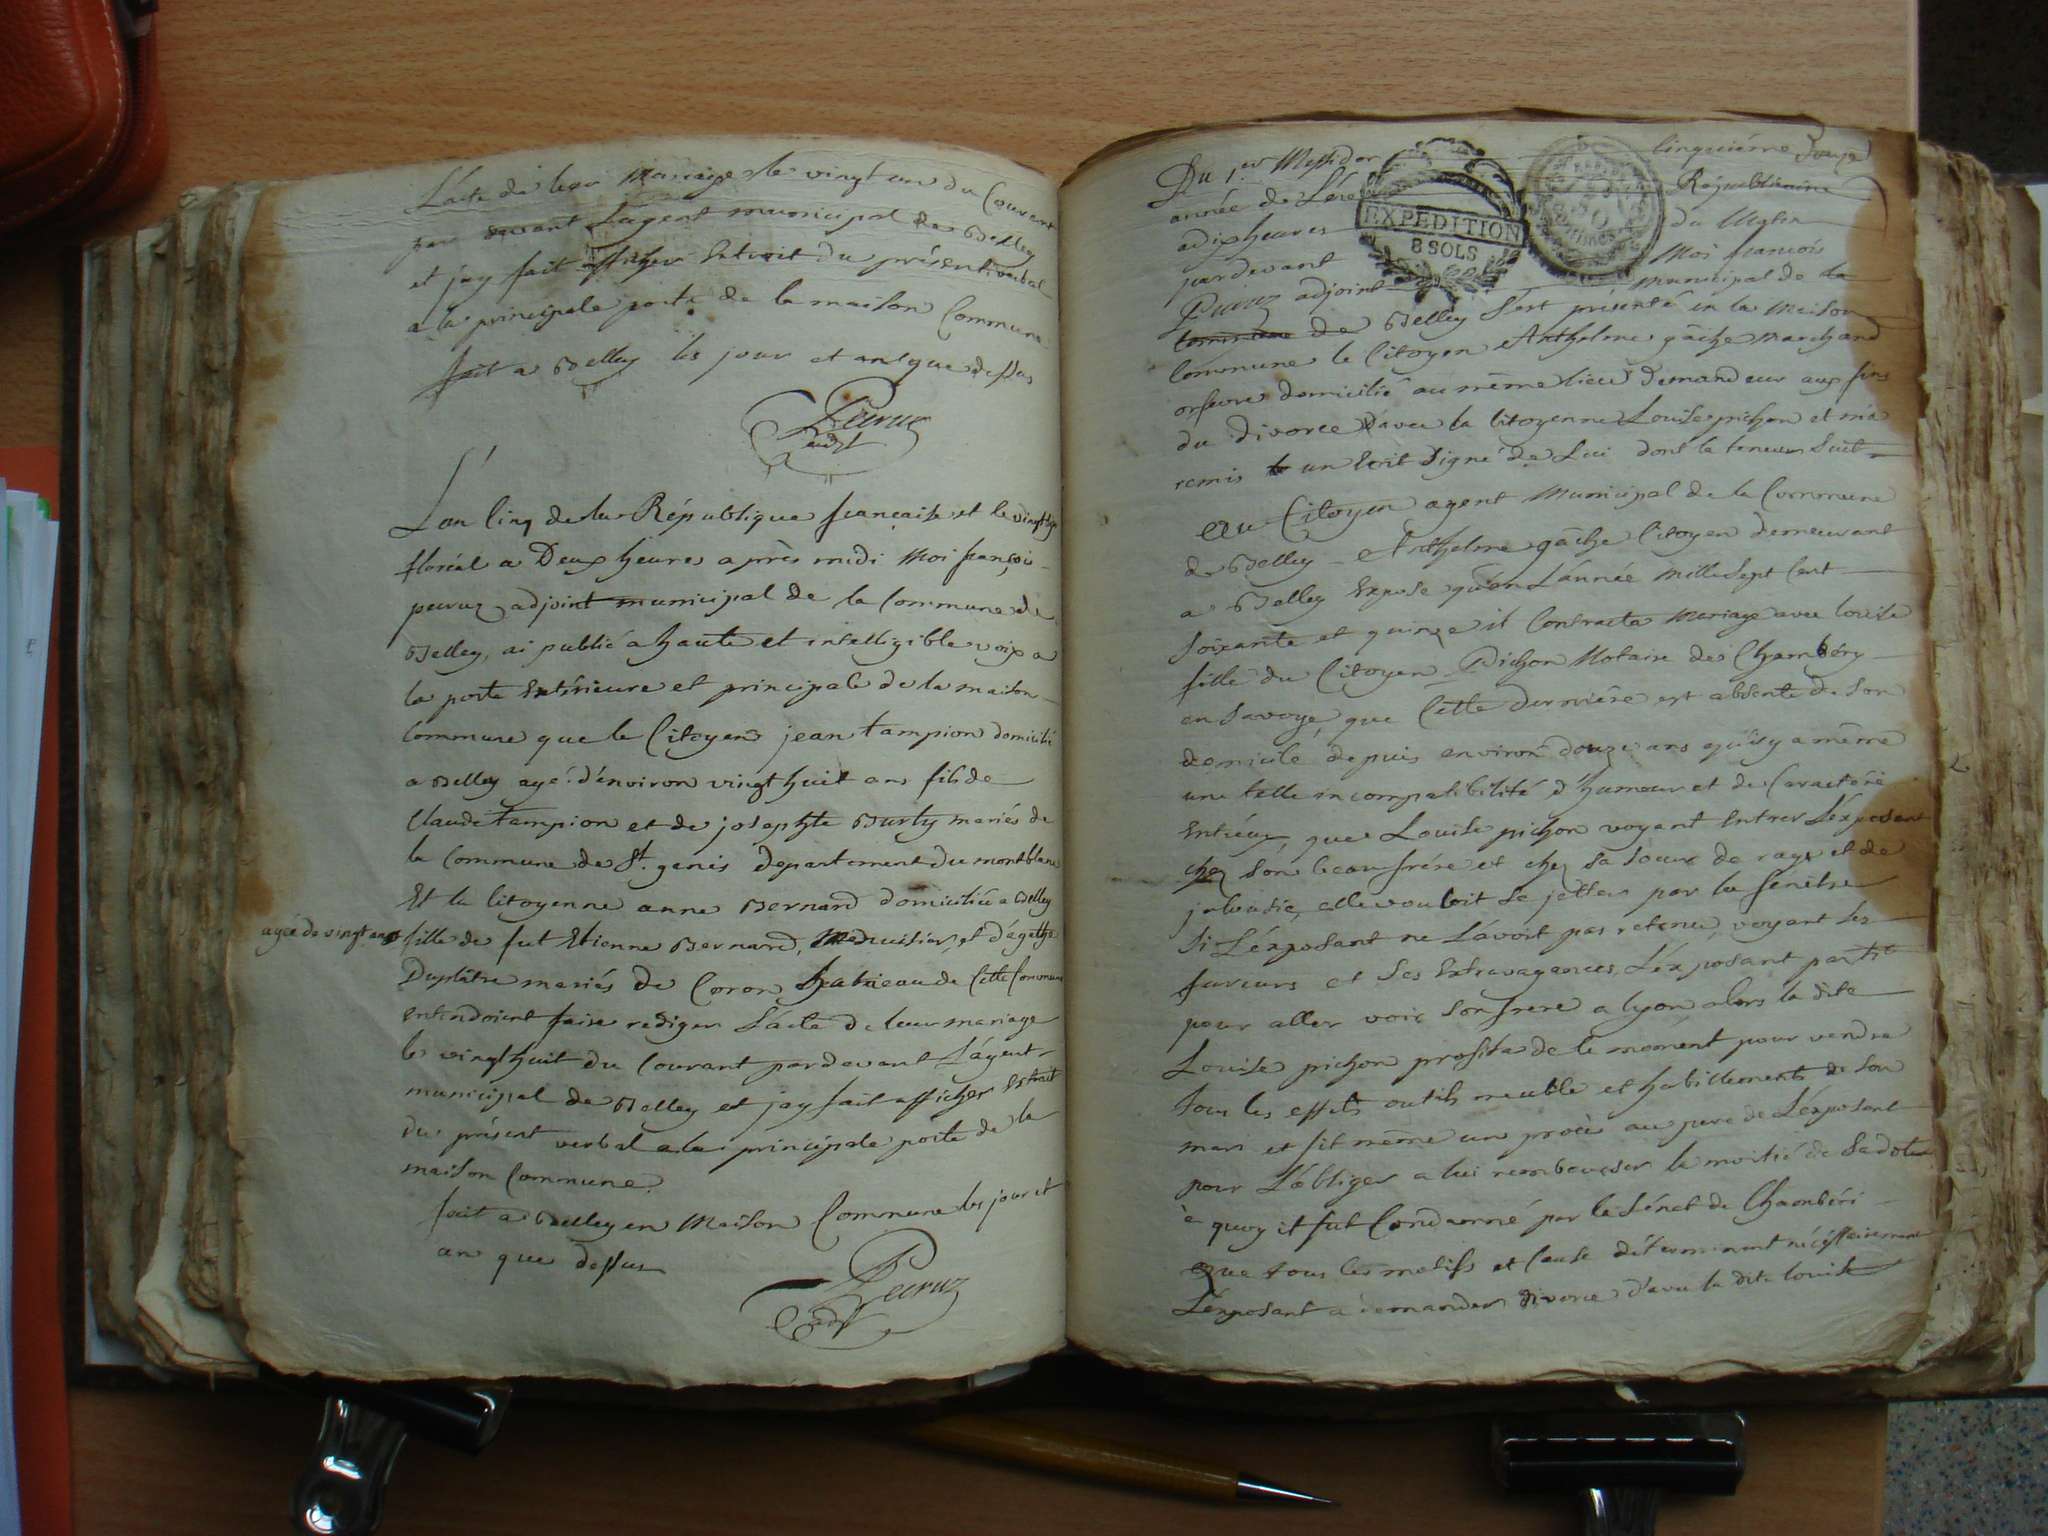 L'acte de leur Mariage le vingt un du Courant
par devant L'agent municipal de Belley
et jay fait afficher Extrait du présent verbal
a la principale porte de la maison Commune
fait a Belley les jour et an que dessus
Peuruz
adjt
L'an Cinq de la République française et le vingt
floréal a Deux heures après midi Moi françois
peuruz adjoint municipal de la Commune de
Belley, ai publié a haute et intelligible voix a
la porte Extérieure et principale de la maison
Commune que le Citoyen jean tampion domicilié
a Belley agé d'environ vingt huit ans fils de
Claude tampion et de josephte Burty mariés de
la Commune de St. genis departement du montblanc
Et la Citoyenne anne Bernard domiciliée a Belley
agée de vingt ans
fille de fut Etienne Bernard, Menuisier, et d'agathe
Duplâtre mariés de Coron hameau de Cette Commune
entendoient faire rediger L'acte de leur mariage
le vingt huit du Courant pardevant L'agent
municipal de Belley et jay fait afficher Extrait
du présent verbal a la principale porte de la
maison Commune.
fait a Belley en Maison Commune les jour et
an que dessus
Peuruz
adjt
Du 1er Messidor Cinquième
année de L'ère Républicaine
a dix heures du Matin
pardevant Moi françois
Peuruz adjoint municipal de la
EXPÉDITION
8 SOLS
Commune de Belley S'est présenté en la Maison
Commune le Citoyen Anthelme gâche Marchand
orfevre domicilié au même lieu Demandeur aux fins
du divorce D'avec la Citoyenne Louise pichon et m'a
remis un Ecrit Signé de Lui dont la teneur Suit
Au Citoyen agent Municipal de la Commune
de Belley Anthelme gâche Citoyen demeurant
a Belley Expose qu'en L'année Mille Sept Cent
Soixante et quinze il Contracta Mariage avec louise
fille du Citoyen Pichon Notaire de Chambéry
en Savoye, que Cette dernière est absente de Son
domicile depuis environ douze ans qu'il y a même
une telle incompatibilité d'humeur et de Caractère
Entr'eux, que Louise pichon voyant Entrer L'Exposant
chez Son beau frère et chez Sa Soeur de rage et de
jalousie, elle vouloit Se jetter par la fenêtre
Si L'exposant ne L'avoit pas retenue, voyant Ses
fureurs et Ses Extravagances, L'exposant partit
pour aller voir Son frere a lyon, alors la dite
Louise pichon profita de Ce moment pour vendre
Tous les effets outils meuble et habillements de Son
mari et fit même un procès au pere de L'Exposant
pour L'obliger a lui rembourser la moitié de Sa dote
à quoy il fut Condamné par le Sénat de Chambéri
Que tous les motifs et Cause déterminent nécessairement
L'exposant a demander divorce d'avec la dite louise